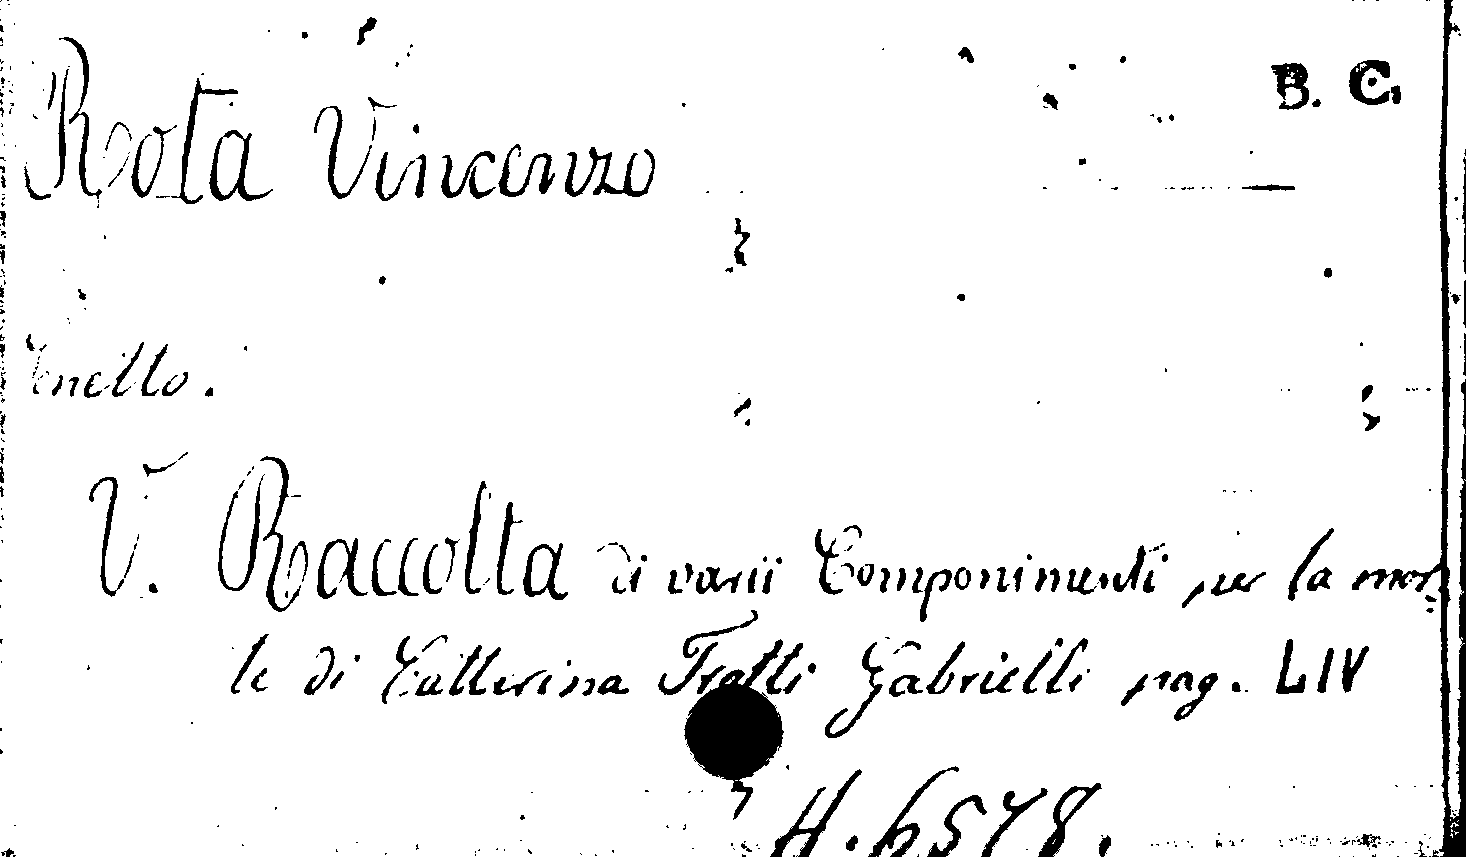 B. C.
Rota Vincenzo
V. Raccolta di varii Componimenti per la mor-
te di Catterina Tratti Gabrielli pag. LIV
H. 6578.